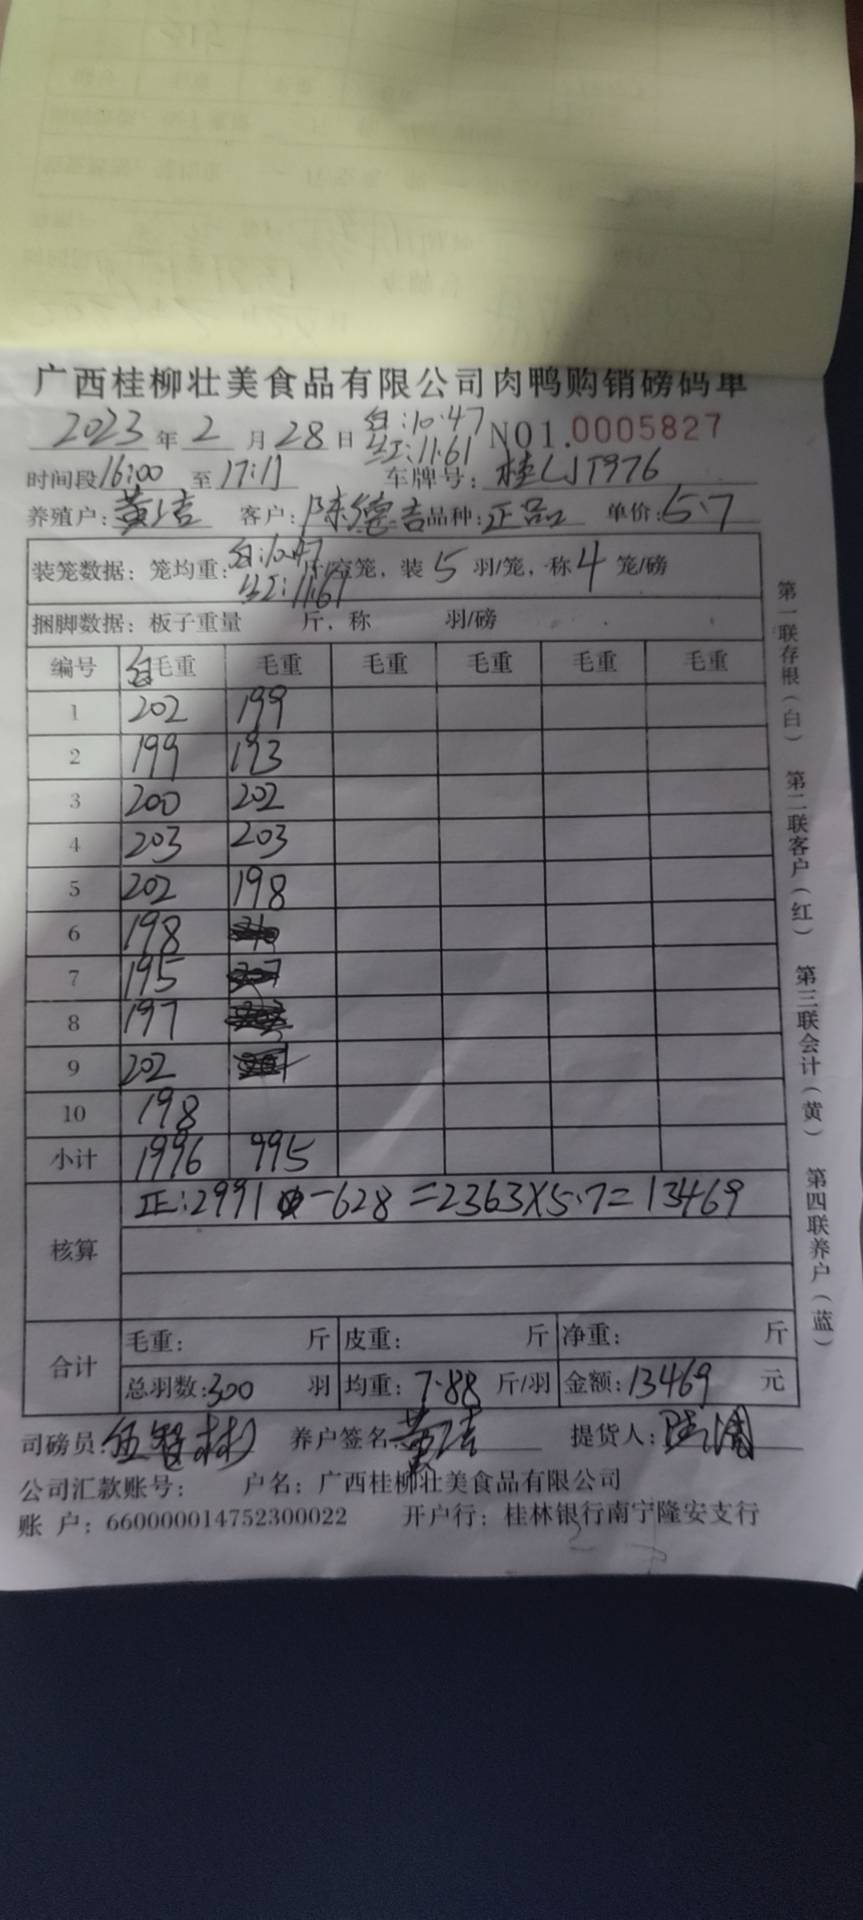 广西桂柳壮美食品有限公司肉鸭购销磅码单
2023年2月28日 白:10.47 红:11.61 NO1.0005827
时间段16:00至17:11 车牌号:桂LJT976
养殖户:黄 吉 客户:陈德吉 品种:正品 单价:5.7
装笼数据:笼均重:白:10.47 红:11.61 斤/空笼,装5羽/笼,称4笼/磅
捆脚数据:板子重量 斤,称 羽/磅
编号 白毛重 毛重 毛重 毛重 毛重 毛重
1 202 199
2 199 193
3 200 202
4 203 203
5 202 198
6 198
7 195
8 197
9 202
10 198
小计 1996 995
核算 正:2991-628=2363X5.7=13469
合计 毛重: 斤 皮重: 斤 净重: 斤
总羽数:300 羽 均重:7.88 斤/羽 金额:13469 元
司磅员:伍智彬 养户签名:黄 吉 提货人:
公司汇款账号: 户名:广西桂柳壮美食品有限公司
账 户:660000014752300022 开户行:桂林银行南宁隆安支行
第一联存根(白) 第二联客户(红) 第三联会计(黄) 第四联养户(蓝)